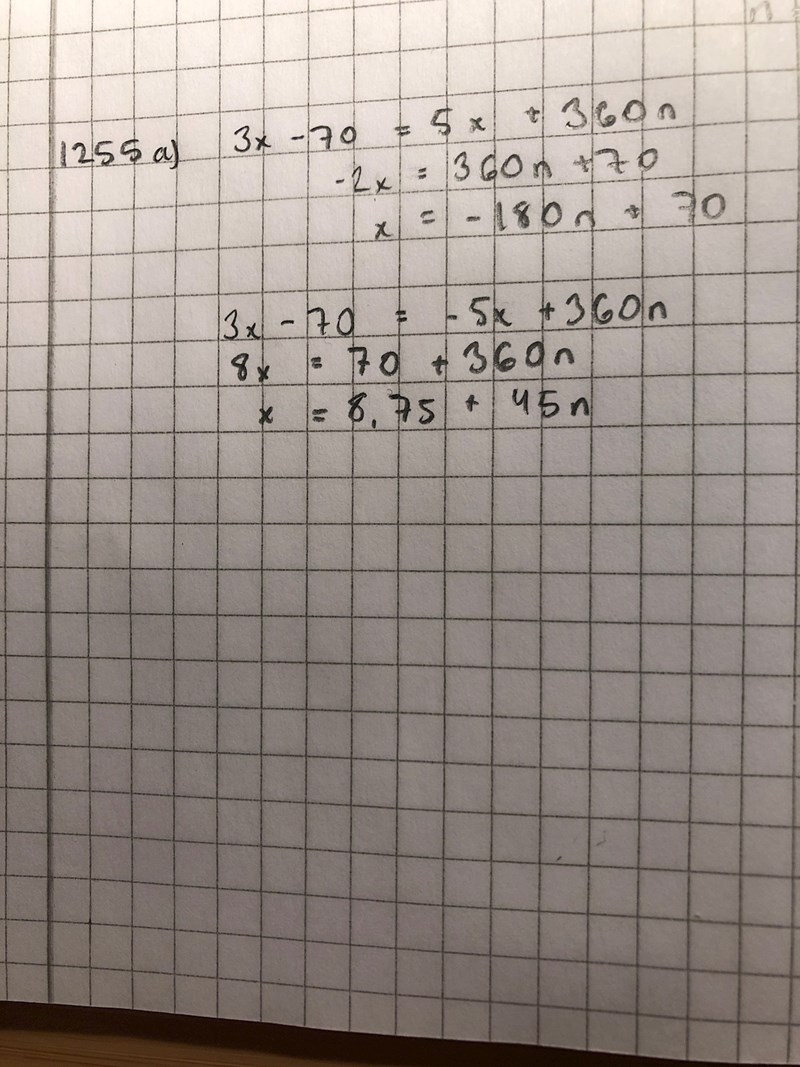 1255 a) 3x - 70 = 5x + 360n
-2x = 360n + 70
x = -180n + 70
3x - 70 = -5x + 360n
8x = 70 + 360n
x = 8,75 + 45n